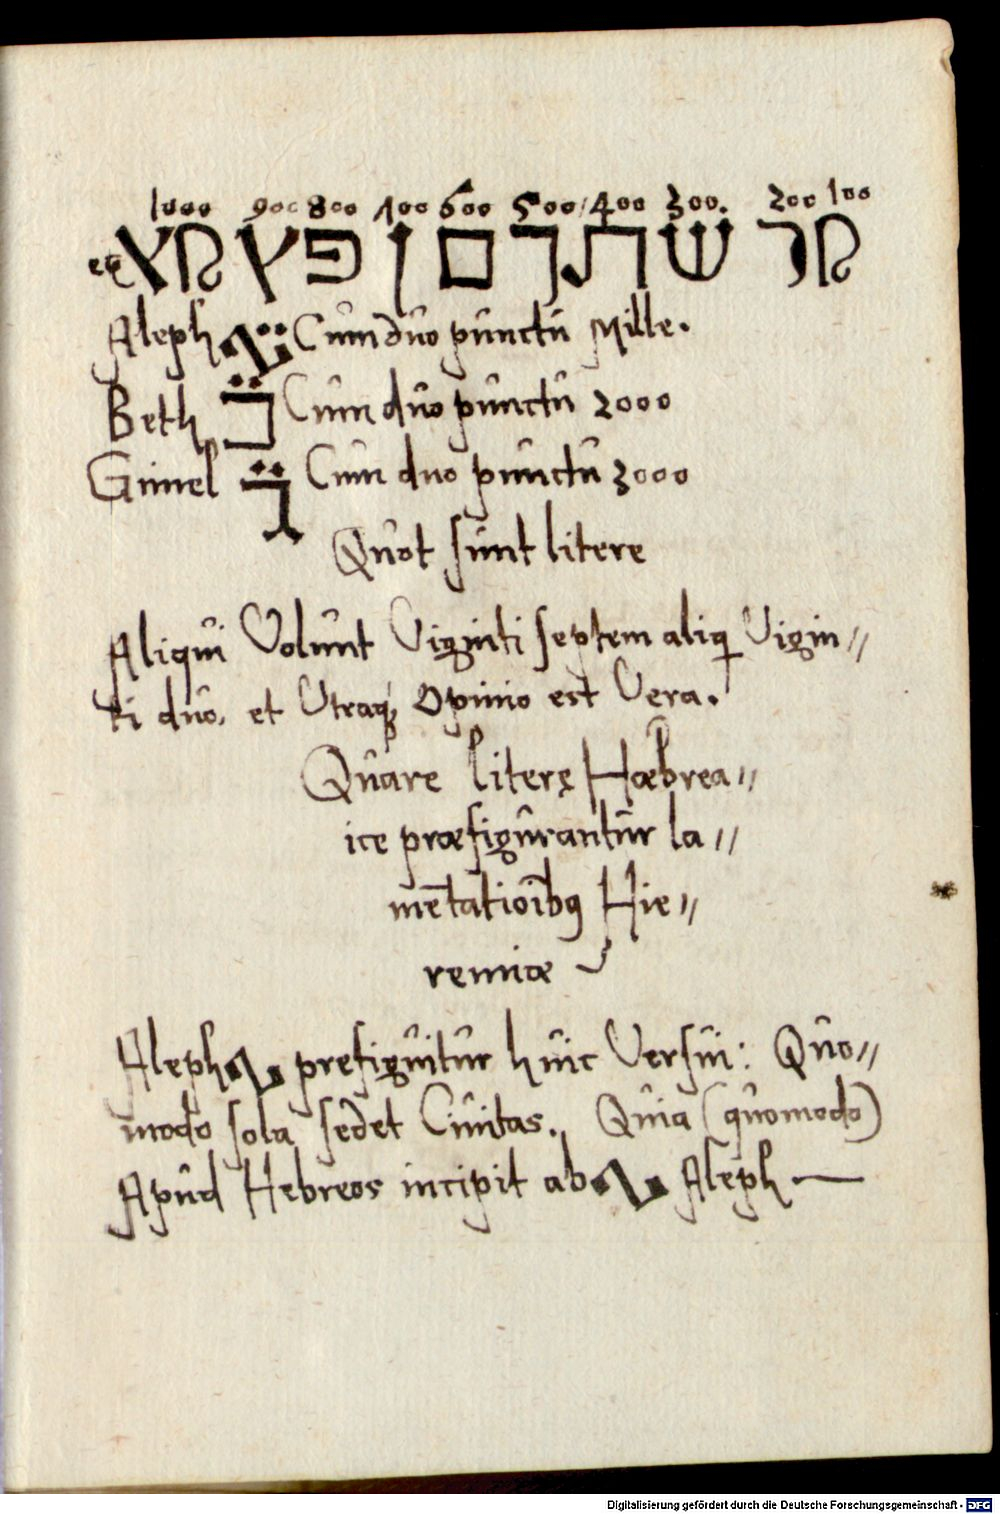 1000 900 800 700 600 500 400 300. 200 100
ק ר ש ת ך ם ן ף ץ
Aleph א̈ Cum duo punctu Mille.
Beth ב̈ Cum duo punctu 2000
Gimel ג̈ Cum duo punctu 3000
Quot sunt litere
Aliqui Volunt Viginti septem aliq Vigin〃
ti duo, et Utraq Opinio est Vera.
Quare literę Hæbrea〃
ice præfigurantur la〃
mētatioībq Hie〃
remiæ
Aleph א prefiguitur huic Versui: Quo〃
modo sola sedet Ciuitas. Quia (quomodo)
Apud Hebreos incipit ab א Aleph —
Digitalisierung gefördert durch die Deutsche Forschungsgemeinschaft - DFG